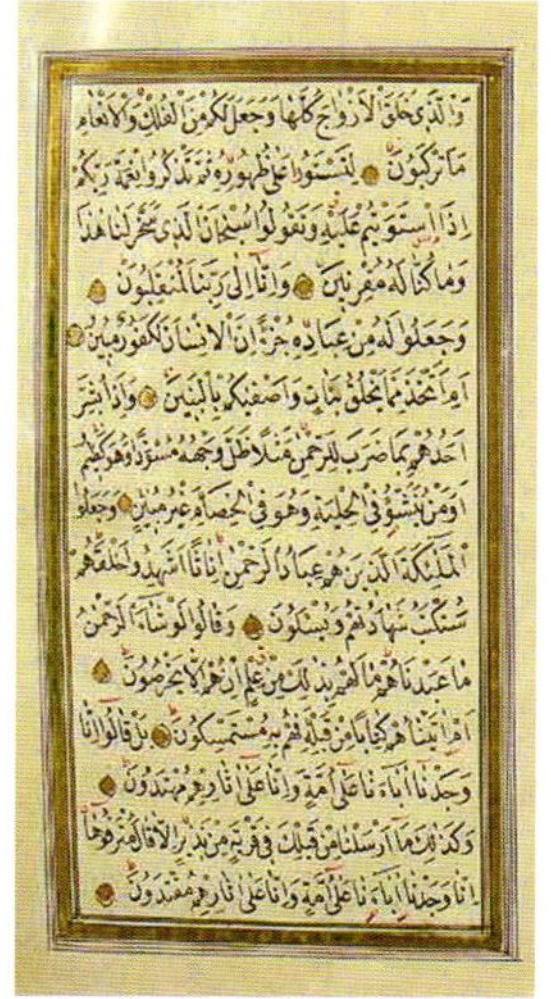 وَالَّذِي خَلَقَ الْاَزْوَاجَ كُلَّهَا وَجَعَلَ لَكُمْ مِنَ الْفُلْكِ وَالْاَنْعَامِ
مَا تَرْكَبُونَ لِتَسْتَوُوا عَلٰى ظُهُورِهِ ثُمَّ تَذْكُرُوا نِعْمَةَ رَبِّكُمْ
اِذَا اسْتَوَيْتُمْ عَلَيْهِ وَتَقُولُوا سُبْحَانَ الَّذِي سَخَّرَ لَنَا هٰذَا
وَمَا كُنَّا لَهُ مُقْرِنِينَ وَاِنَّا اِلٰى رَبِّنَا لَمُنْقَلِبُونَ
وَجَعَلُوا لَهُ مِنْ عِبَادِهِ جُزْءًا اِنَّ الْاِنْسَانَ لَكَفُورٌ مُبِينٌ
اَمِ اتَّخَذَ مِمَّا يَخْلُقُ بَنَاتٍ وَاَصْفٰيكُمْ بِالْبَنِينَ وَاِذَا بُشِّرَ
اَحَدُهُمْ بِمَا ضَرَبَ لِلرَّحْمٰنِ مَثَلًا ظَلَّ وَجْهُهُ مُسْوَدًّا وَهُوَ كَظِيمٌ
اَوَمَنْ يُنَشَّؤُ فِي الْحِلْيَةِ وَهُوَ فِي الْخِصَامِ غَيْرُ مُبِينٍ وَجَعَلُوا
الْمَلٰئِكَةَ الَّذِينَ هُمْ عِبَادُ الرَّحْمٰنِ اِنَاثًا اَشَهِدُوا خَلْقَهُمْ
سَتُكْتَبُ شَهَادَتُهُمْ وَيُسْئَلُونَ وَقَالُوا لَوْ شَاءَ الرَّحْمٰنُ
مَا عَبَدْنَاهُمْ مَا لَهُمْ بِذٰلِكَ مِنْ عِلْمٍ اِنْ هُمْ اِلَّا يَخْرُصُونَ
اَمْ اٰتَيْنَاهُمْ كِتَابًا مِنْ قَبْلِهِ فَهُمْ بِهِ مُسْتَمْسِكُونَ بَلْ قَالُوا اِنَّا
وَجَدْنَا اٰبَاءَنَا عَلٰى اُمَّةٍ وَاِنَّا عَلٰى اٰثَارِهِمْ مُهْتَدُونَ
وَكَذٰلِكَ مَا اَرْسَلْنَا مِنْ قَبْلِكَ فِي قَرْيَةٍ مِنْ نَذِيرٍ اِلَّا قَالَ مُتْرَفُوهَا
اِنَّا وَجَدْنَا اٰبَاءَنَا عَلٰى اُمَّةٍ وَاِنَّا عَلٰى اٰثَارِهِمْ مُقْتَدُونَ